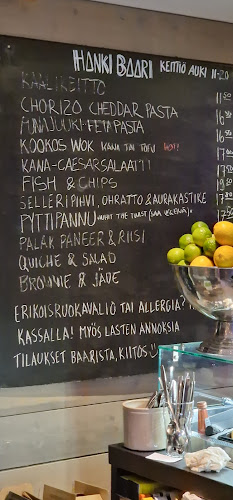 HANKI BAARI KEITTIÖ AUKI 11-20
KAALIKEITTO 11 50
CHORIZO CHEDDAR PASTA 16 50
PASTA
KOOKOS WOK KANA TAI TOFU HOT!
KANA-CAESARSALAATTI
FISH & CHIPS
SELLERIPIHVI, OHRATTO & AURAKASTIKE
PYTTIPANNU WHAT THE TOAST (SAA VEGENÄ)
PALAK PANEER & RIISI
QUICHE & SALAD
BROWNIE & JÄDE
ERIKOISRUOKAVALIO TAI ALLERGIA?
KASSALLA! MYÖS LASTEN ANNOKSIA
TILAUKSET BAARISTA, KIITOS